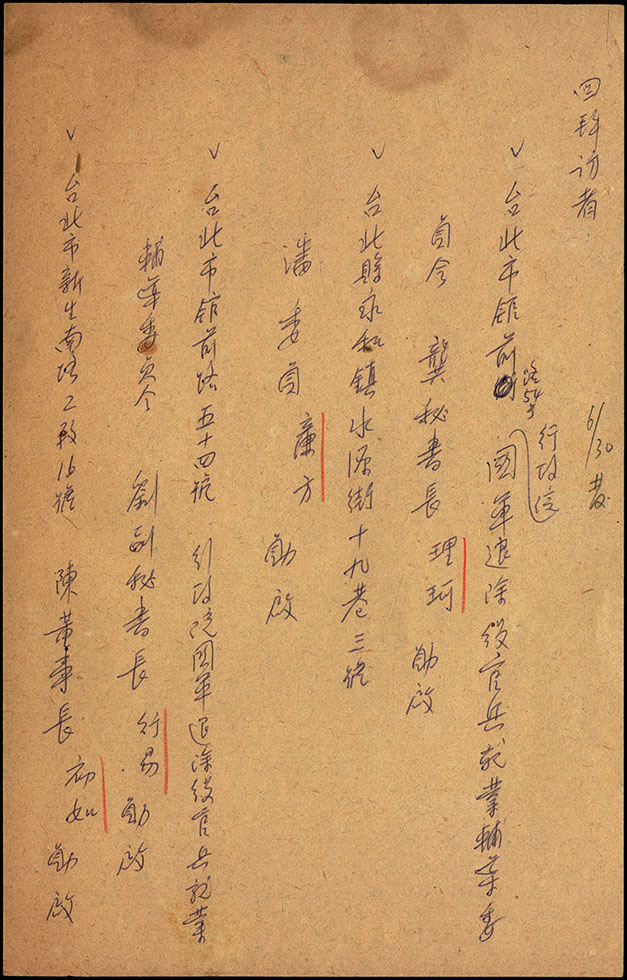 回拜訪者
6/30發
✓ 台北市館前路54号 行政院 國軍退除役官兵就業輔導委
員会 龔秘書長 理珂 勛啟
✓ 台北縣永和鎮水源街十九巷三號
潘委員 廉方 勛啟
✓ 台北市館前路五十四號 行政院國軍退除役官兵就業
輔導委員会 劉副秘書長 行易 勛啟
✓ 台北市新生南路二段16號 陳董事長 初如 勛啟